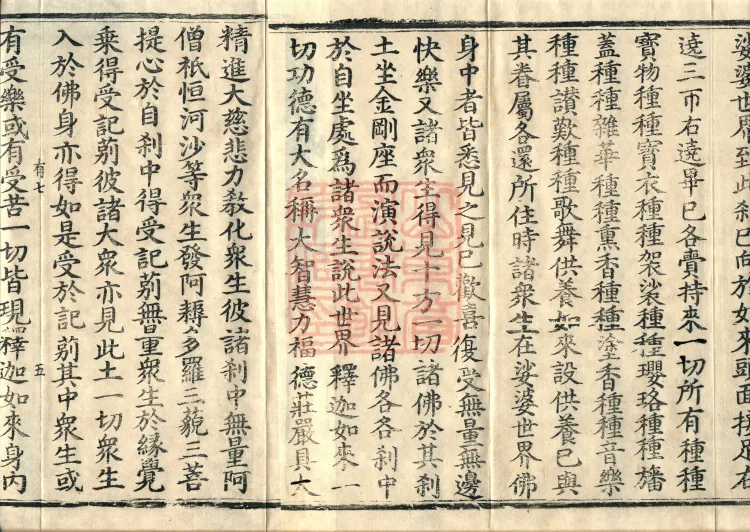 娑婆世界至此刹已向於如來頭面接足右
遶三帀右遶畢已各賷持來一切所有種種
寶物種種寶衣種種袈裟種種瓔珞種種旛
蓋種種雜華種種熏香種種塗香種種音樂
種種讃歎種種歌舞供養如來設供養已與
其眷屬各還所住時諸衆生在娑婆世界佛
身中者皆悉見之見已歡喜復受無量無邊
快樂又諸衆生得見十方一切諸佛於其刹
土坐金剛座而演說法又見諸佛各各刹中
於自坐處爲諸衆生說此世界釋迦如來一
切功德有大名稱大智慧力福德莊嚴具大
精進大慈悲力敎化衆生彼諸刹中無量阿
僧祇恒河沙等衆生發阿耨多羅三藐三菩
提心於自刹中得受記莂無量衆生於緣覺
乘得受記莂彼諸大衆亦見此土一切衆生
入於佛身亦得如是受於記莂其中衆生或
有七 五
有受樂或有受苦一切皆現釋迦如來身内